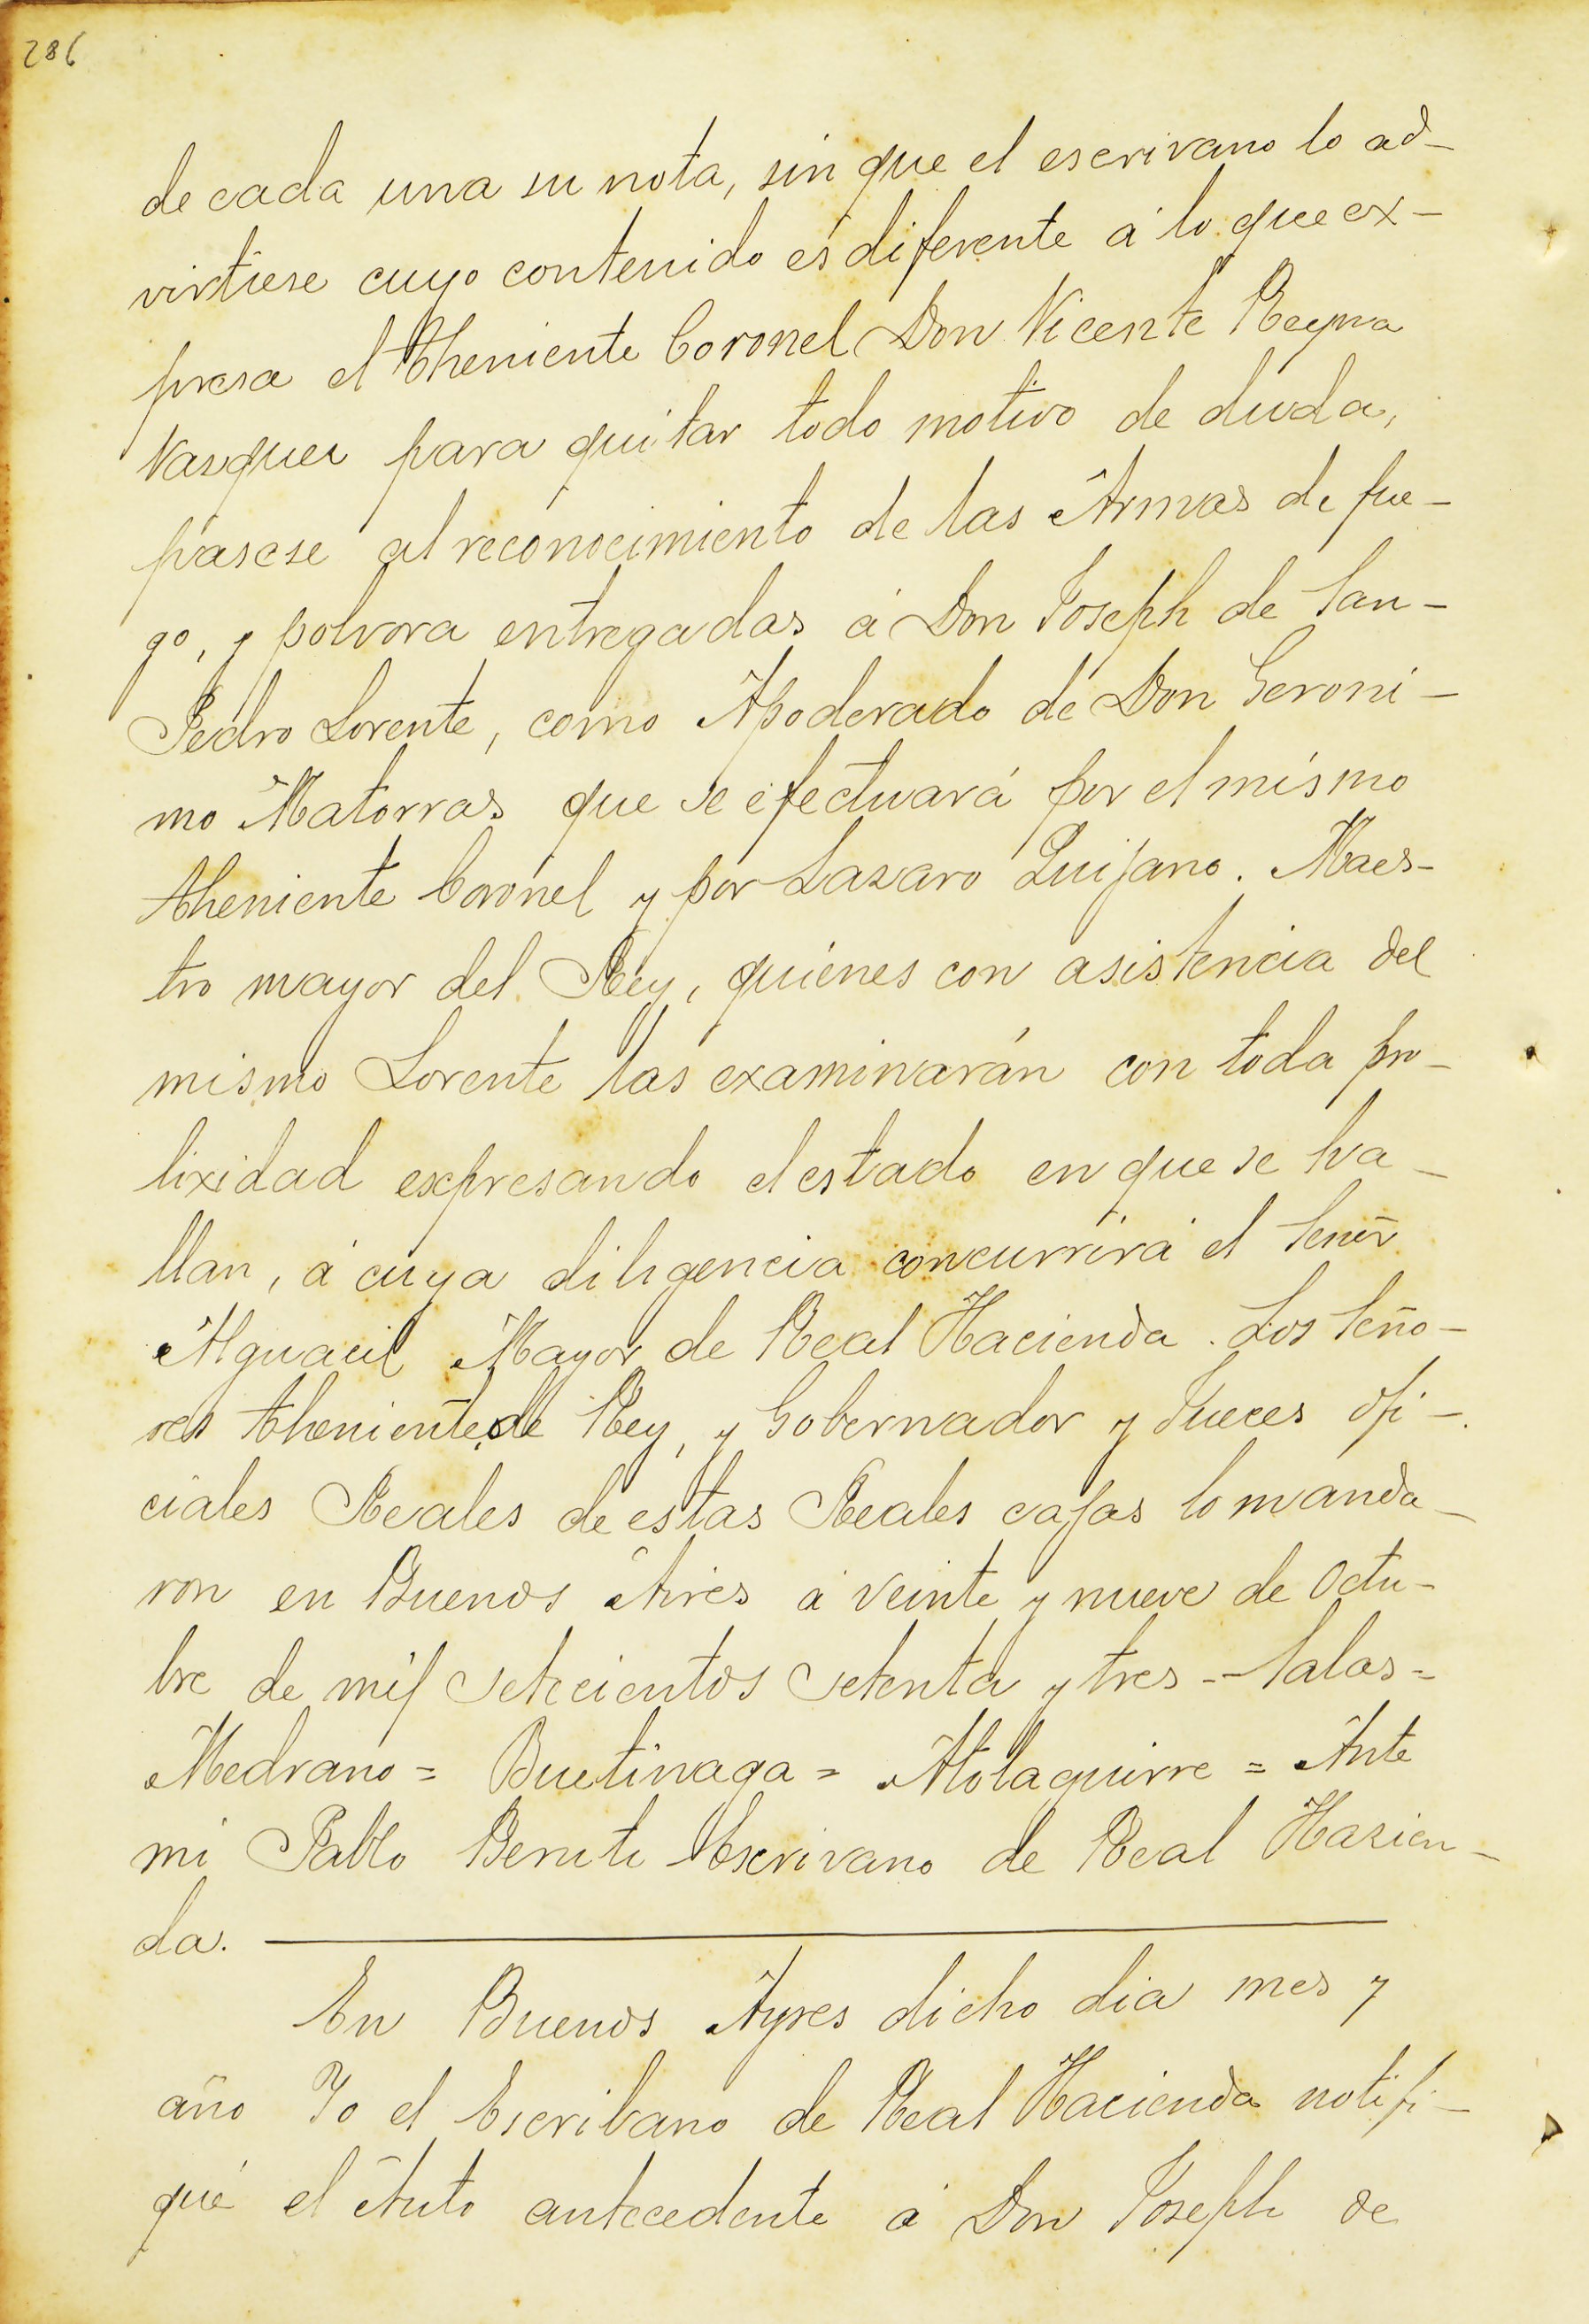 286
de cada una su nota, sin que el escrivano lo ad-
virtiese cuyo contenido es diferente á lo que ex-
presa el Theniente Coronel Don Vicente Reyna
Vasquez para quitar todo motivo de duda,
pasese al reconocimiento de las Armas de fue-
go, y polvora entregadas á Don Joseph de San-
Pedro Lorente, como Apoderado de Don Geroni-
mo Matorras que se efectuará por el mismo
theniente Coronel y por Lazaro Quijano. Maes-
tro mayor del Rey, quienes con asistencia del
mismo Lorente las examinarán con toda pro-
lixidad expresando el estado en que se ha-
llan, á cuya diligencia concurrirá el Señor
Alguacil Mayor de Real Hacienda. Los Seño-
res theniente de Rey, y Gobernador y Jueces ofi-
ciales Reales de estas Reales cajas lo manda-
ron en Buenos Aires á veinte y nueve de Octu-
bre de mil setecientos setenta y tres -- Salas =
Medrano = Buetinaga = Atolaguirre = Ante
mi Pablo Beruti Escrivano de Real Hazien-
da.
En Buenos Ayres dicho dia mes y
año Yo el Escribano de Real Hacienda notifi-
qué el Auto antecedente á Don Joseph de